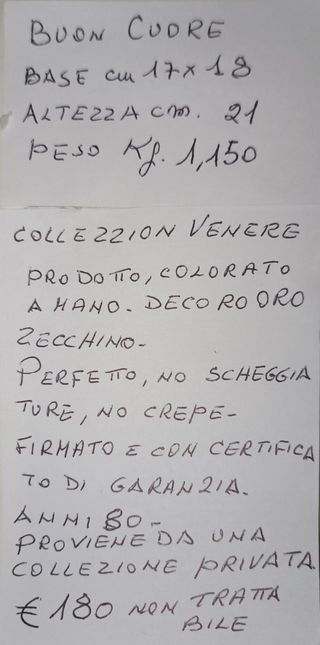 BUON CUORE
BASE cm 17x18
ALTEZZA cm. 21
PESO Kg. 1,150
COLLEZZION VENERE
PRODOTTO, COLORATO
A MANO. DECORO ORO
ZECCHINO-
PERFETTO, NO SCHEGGIA
TURE, NO CREPE-
FIRMATO E CON CERTIFICA
TO DI GARANZIA.
ANNI 80-
PROVIENE DA UNA
COLLEZIONE PRIVATA
€ 180 NON TRATTA
BILE